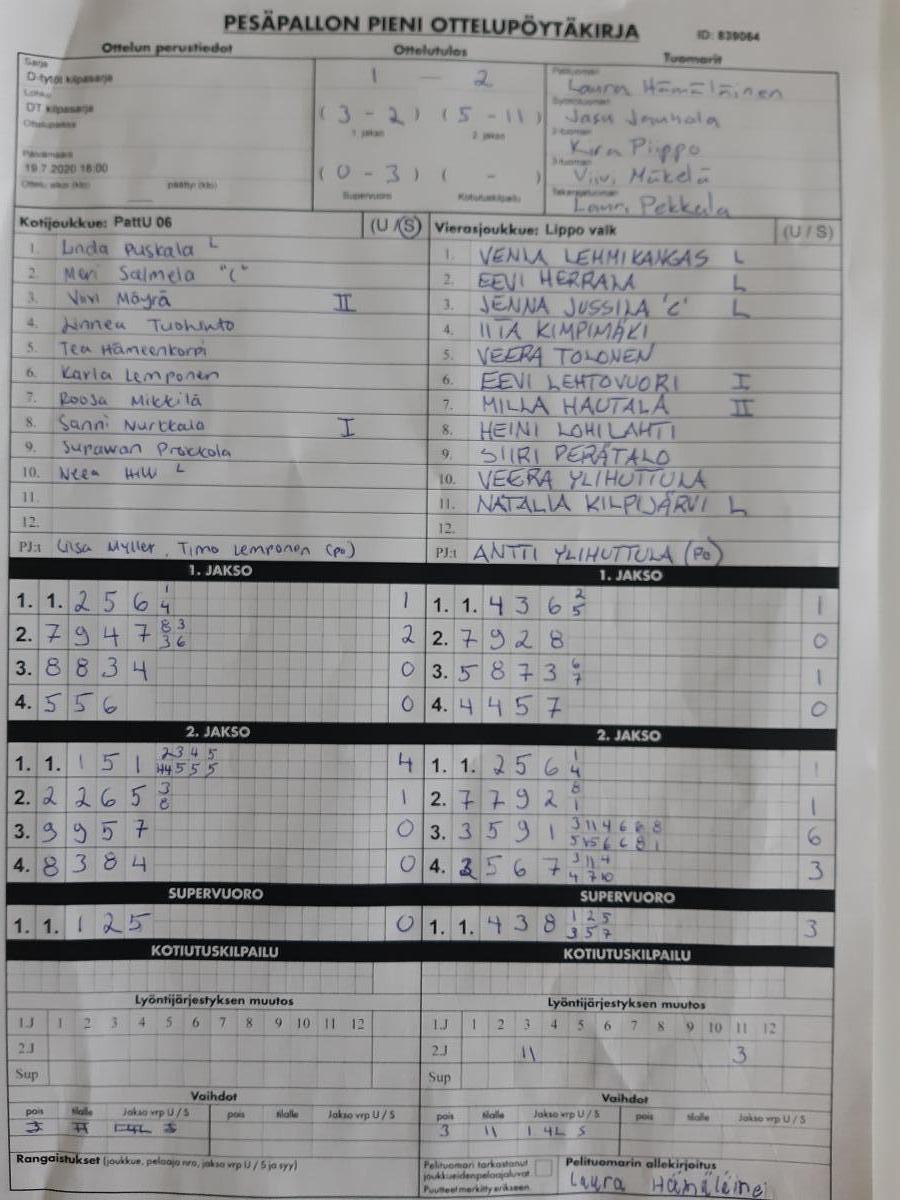 PESÄPALLON PIENI OTTELUPÖYTÄKIRJA ID: 839064
Ottelun perustiedot Ottelutulos Tuomarit
Sarja
D-tytöt kilpasarja 1 - 2 Laura Hämäläinen
Lohko
DT kilpasarja (3 - 2) (5 - 11)
1. jakso 2. jakso
Ottelupaikka Kira Piippo
Päivämäärä
19.7.2020 16:00 (0 - 3) ( - ) Viivi Mäkelä
Ottelu alkoi (klo) päättyi (klo) Supervuoro Kotiutuskilpailu
Lauri Pekkala
Kotijoukkue: PattU 06 (U / S) Vierasjoukkue: Lippo valk (U / S)
1. Linda Puskala L 1. VENLA LEHMIKANGAS L
2. Meri Salmela "C" 2. EEVI HERRALA L
3. Viivi Möyrä II 3. JENNA JUSSILA 'C' L
4. Linnea 4. IITA KIMPIMÄKI
5. Tea Hämeenkorpi 5. VEERA TOLONEN
6. Karla Lemponen 6. EEVI LEHTOVUORI I
7. Roosa Mikkilä 7. MILLA HAUTALA II
8. Sanni Nurkkala I 8. HEINI LOHILAHTI
9. Surawan Prokkola 9. SIIRI PERÄTALO
10. Neea L 10. VEERA YLIHUTTULA
11. 11. NATALIA KILPIJÄRVI L
12. 12.
PJ:t Liisa Myller, Timo Lemponen (po) PJ:t ANTTI YLIHUTTULA (Po)
1. JAKSO 1. JAKSO
1. 1. 2 5 6 1 1 1. 1. 4 3 6 2 1
4 5
2. 7 9 4 7 8 3 2 2. 7 9 2 8 0
3 6
3. 8 8 3 4 0 3. 5 8 7 3 6 1
7
4. 5 5 6 0 4. 4 4 5 7 0
2. JAKSO 2. JAKSO
1. 1. 1 5 1 2 3 4 5 4 1. 1. 2 5 6 1 1
5 5 5 4
2. 2 2 6 5 3 1 2. 7 7 9 2 8 1
8 1
3. 9 9 5 7 0 3. 3 5 9 1 3 11 4 6 6 8 6
6 6 8 1
4. 8 3 8 4 0 4. 5 6 7 3 11 4 3
4 7 10
SUPERVUORO SUPERVUORO
1. 1. 1 2 5 0 1. 1. 4 3 8 1 2 5 3
3 5 7
KOTIUTUSKILPAILU KOTIUTUSKILPAILU
Lyöntijärjestyksen muutos Lyöntijärjestyksen muutos
1.J 1 2 3 4 5 6 7 8 9 10 11 12 1.J 1 2 3 4 5 6 7 8 9 10 11 12
2.J 2.J 11 3
Sup Sup
Vaihdot Vaihdot
pois tilalle Jakso vrp U / S pois tilalle Jakso vrp U / S pois tilalle Jakso vrp U / S pois tilalle Jakso vrp U / S
3 11 1 4L S
Rangaistukset (joukkue, pelaaja nro, jakso vrp U / S ja syy) Pelituomari tarkastanut Pelituomarin allekirjoitus
joukkueidenpelaajaluvat
Puutteet merkitty erikseen. Laura Hämäläinen